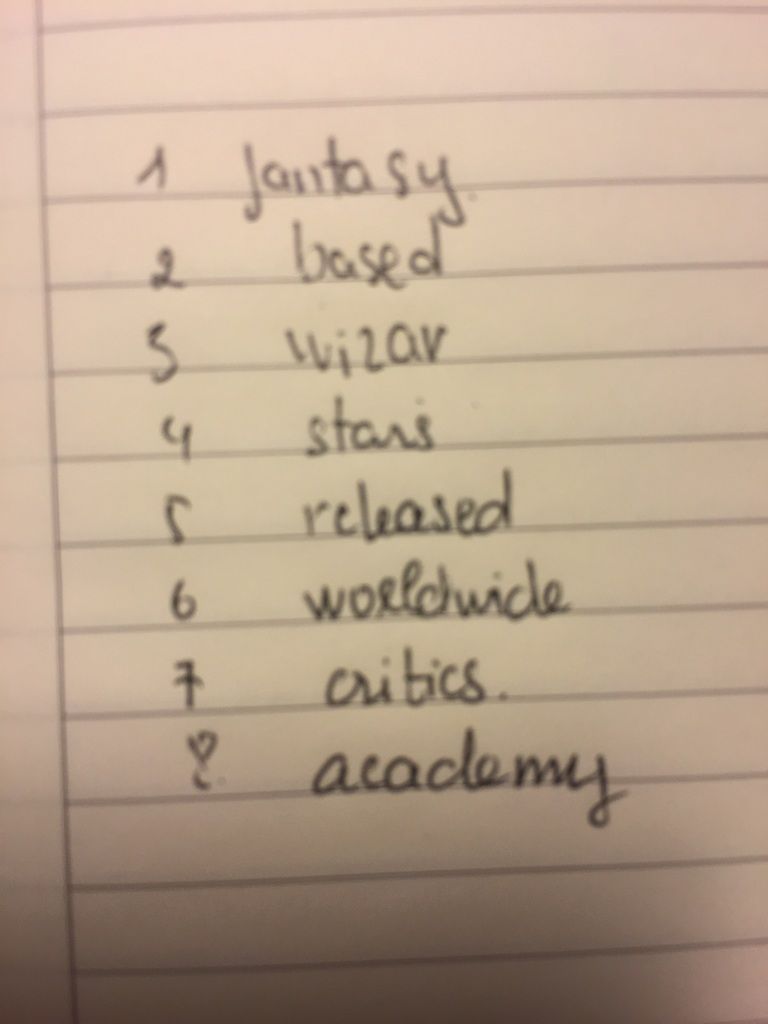 1 fantasy.
2 based
3 wizar
4 stars
5 released
6 worldwide
7 critics.
8 academy